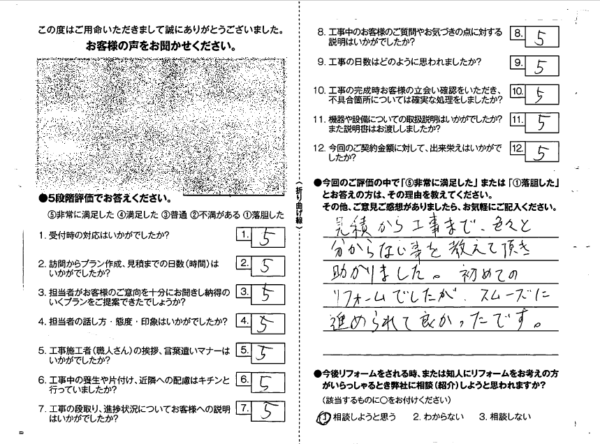 この度はご用命いただきまして誠にありがとうございました。
お客様の声をお聞かせください。
●5段階評価でお答えください。
⑤非常に満足した ④満足した ③普通 ②不満がある ①落胆した
1. 受付時の対応はいかがでしたか？ 1. 5
2. 訪問からプラン作成、見積までの日数（時間）は
いかがでしたか？ 2. 5
3. 担当者がお客様のご意向を十分にお聞きし納得の
いくプランをご提案できたでしょうか？ 3. 5
4. 担当者の話し方・態度・印象はいかがでしたか？ 4. 5
5. 工事施工者（職人さん）の挨拶、言葉遣いマナーは
いかがでしたか？ 5. 5
6. 工事中の養生や片付け、近隣への配慮はキチンと
行っていましたか？ 6. 5
7. 工事の段取り、進捗状況についてお客様への説明
はいかがでしたか？ 7. 5
（折り曲げ線）
8. 工事中のお客様のご質問やお気づきの点に対する
説明はいかがでしたか？ 8. 5
9. 工事の日数はどのように思われましたか？ 9. 5
10. 工事の完成時お客様の立会い確認をいただき、
不具合箇所については確実な処理をしましたか？ 10. 5
11. 機器や設備についての取扱説明はいかがでしたか？
また説明書はお渡ししましたか？ 11. 5
12. 今回のご契約金額に対して、出来栄えはいかがで
したか？ 12. 5
●今回のご評価の中で「⑤非常に満足した」または「①落胆した」
とお答えの方は、その理由を教えてください。
その他、ご意見ご感想がありましたら、お気軽にご記入ください。
見積から工事まで、色々と
分からない事を教えて頂き
助かりました。初めての
リフォームでしたが、スムーズに
進められて良かったです。
●今後リフォームをされる時、または知人にリフォームをお考えの方
がいらっしゃるとき弊社に相談（紹介）しようと思われますか？
（該当するものに○をお付けください）
①相談しようと思う 2. わからない 3. 相談しない